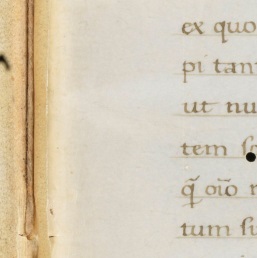 ex quo
pi tam
ut nu
tem
q̃ oio᷉
tum su